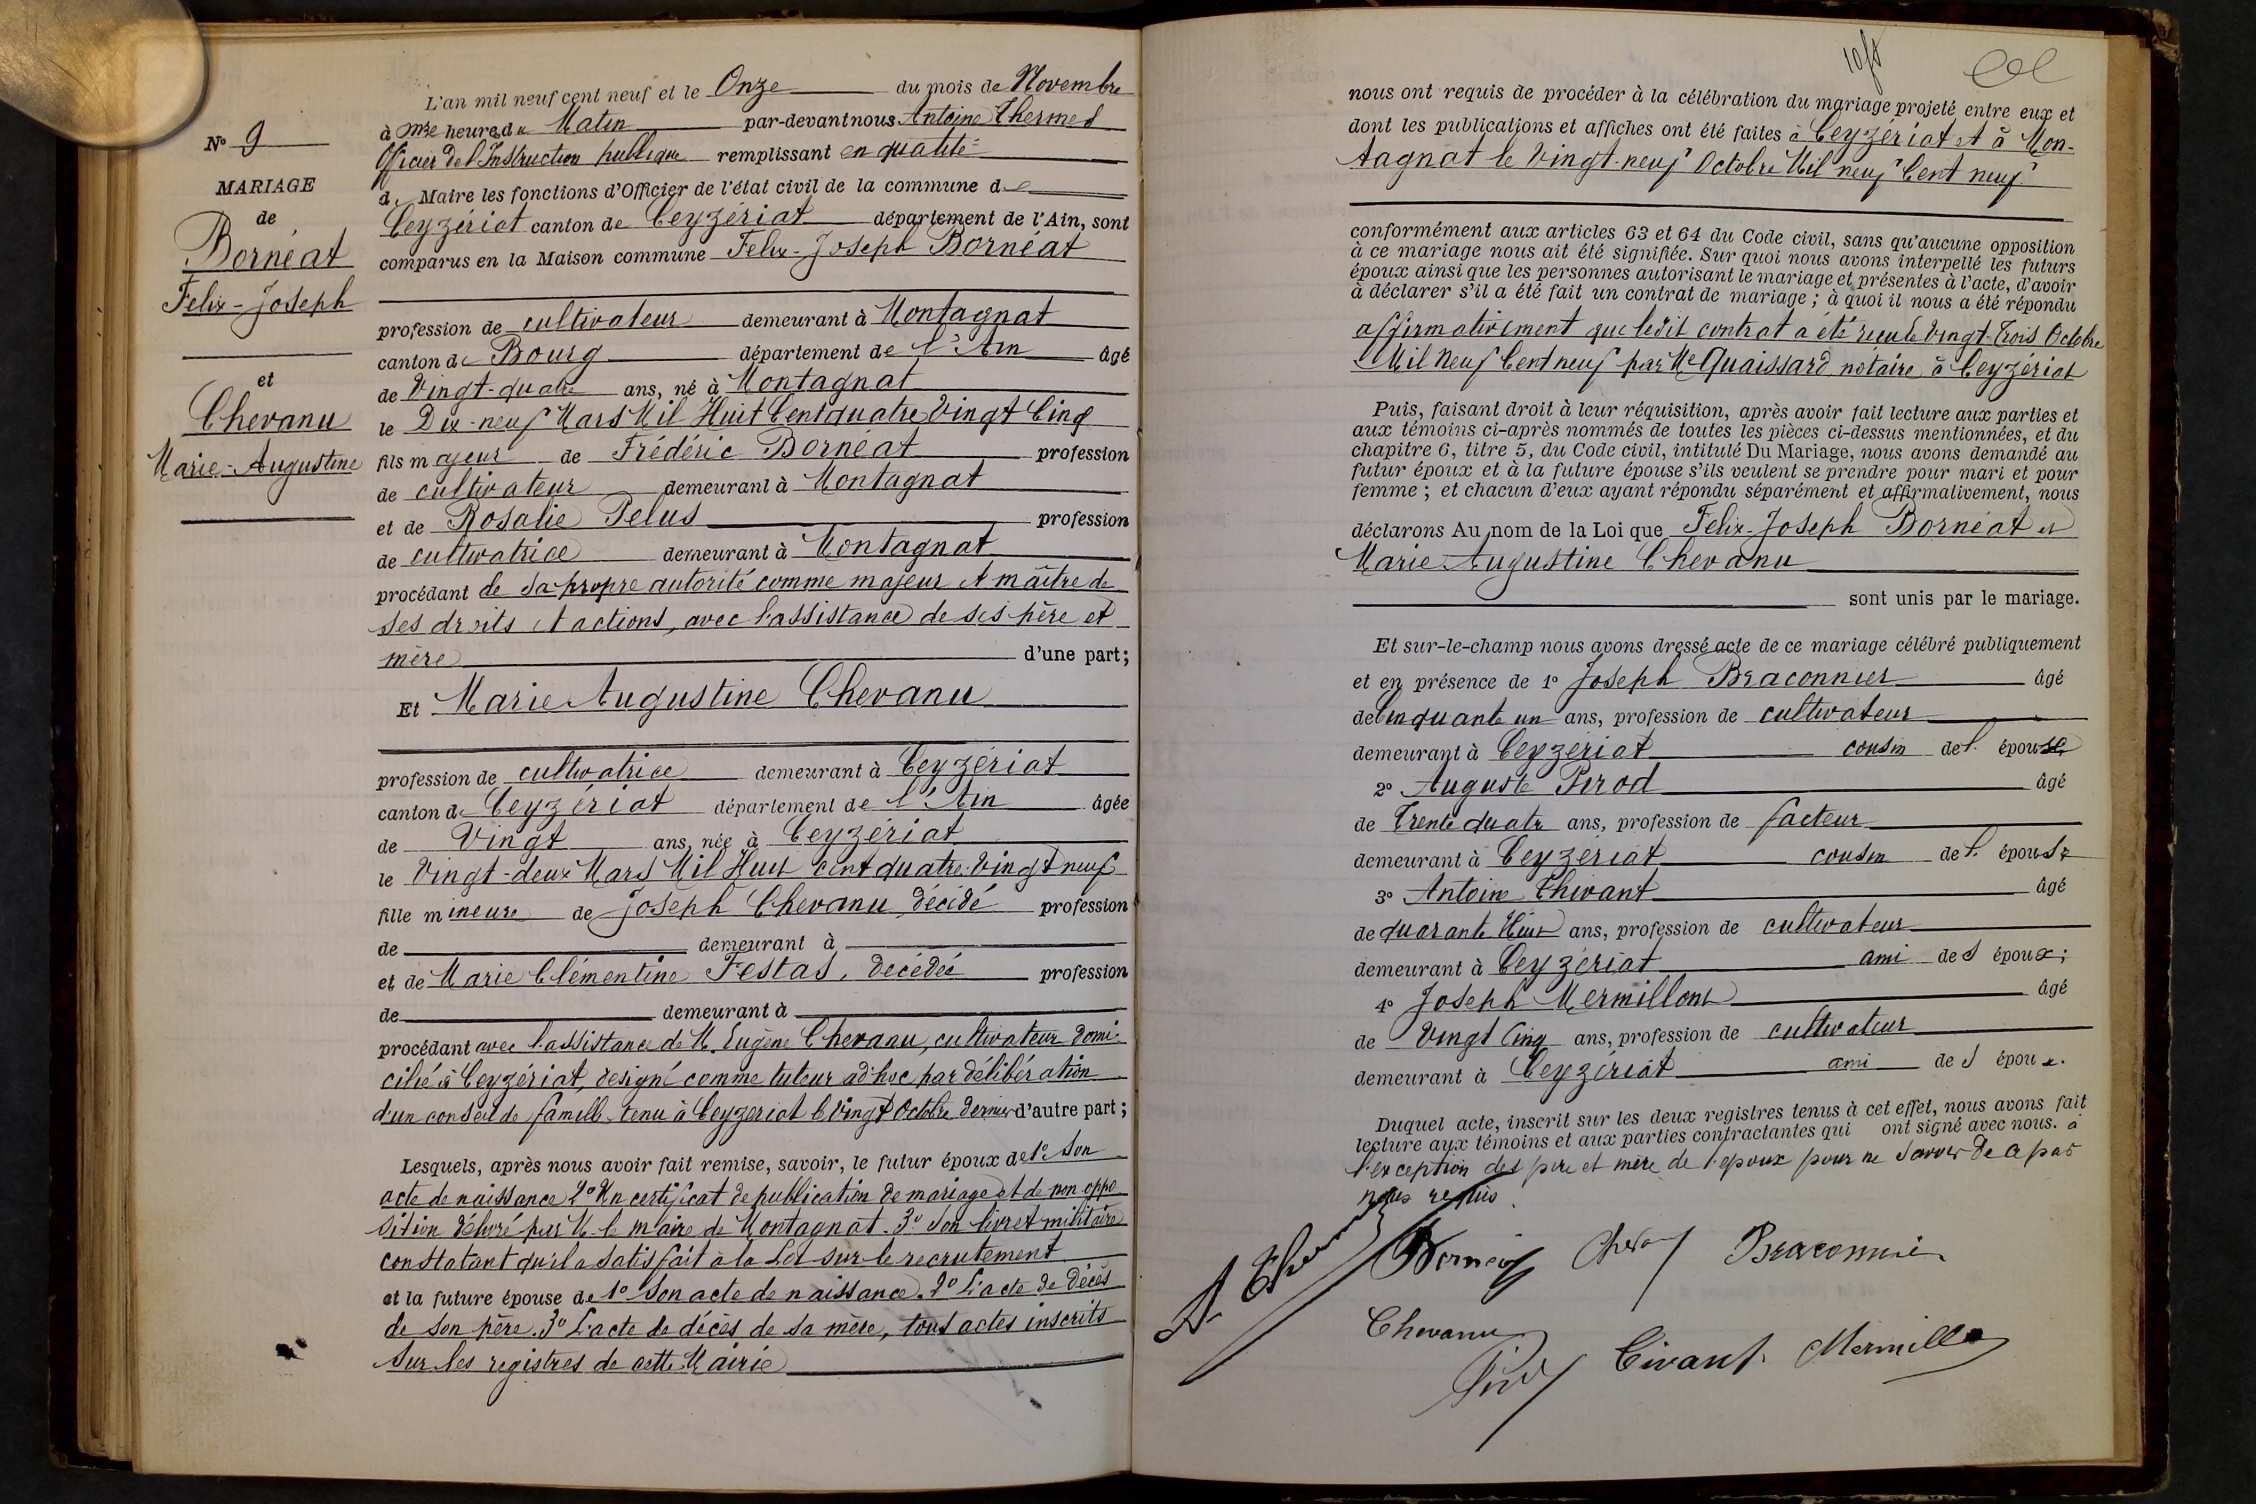 N° 9
MARIAGE
de
Bornéat
Felix-Joseph
et
Chevanu
Marie-Augustine
L'an mil neuf cent neuf et le Onze du mois de Novembre
à onze heures du Matin par-devant nous Antoine Thermes
Officier de l'Instruction publique remplissant en qualité
de Maire les fonctions d'Officier de l'état civil de la commune de
Ceyzériat canton de Ceyzériat département de l'Ain, sont
comparus en la Maison commune Felix-Joseph Bornéat
profession de cultivateur demeurant à Montagnat
canton de Bourg département de l'Ain âgé
de Vingt-quatre ans, né à Montagnat
le Dix-neuf Mars Mil Huit Cent quatre Vingt Cinq
fils majeur de Frédéric Bornéat profession
de cultivateur demeurant à Montagnat
et de Rosalie Pelus profession
de cultivatrice demeurant à Montagnat
procédant de sa propre autorité comme majeur et maître de
ses droits et actions, avec l'assistance de ses père et
mère d'une part;
Et Marie Augustine Chevanu
profession de cultivatrice demeurant à Ceyzériat
canton de Ceyzériat département de l'Ain âgée
de Vingt ans, née à Ceyzériat
le Vingt-deux Mars Mil Huit cent quatre-vingt neuf
fille mineure de Joseph Chevanu, décédé profession
de demeurant à
et de Marie Clémentine Festas, décédée profession
de demeurant à
procédant avec l'assistance de M. Eugène Chevanu, cultivateur domi-
cilié à Ceyzériat, désigné comme tuteur ad'hoc par délibération
d'un conseil de famille tenu à Ceyzériat le Vingt Octobre dernier d'autre part;
Lesquels, après nous avoir fait remise, savoir, le futur époux de 1° Son
acte de naissance 2° Un certificat de publication de mariage et de non oppo
sition délivré par M. le maire de Montagnat. 3° Son livret militaire
constatant qu'il a satisfait à la Loi sur le recrutement
et la future épouse de 1° Son acte de naissance. 2° L'acte de décès
de son père. 3° L'acte de décès de sa mère, tous actes inscrits
sur les registres de cette Mairie
nous ont requis de procéder à la célébration du mariage projeté entre eux et
dont les publications et affiches ont été faites à Ceyzériat et à Mon-
tagnat le Vingt-neuf Octobre Mil neuf Cent neuf
conformément aux articles 63 et 64 du Code civil, sans qu'aucune opposition
à ce mariage nous ait été signifiée. Sur quoi nous avons interpellé les futurs
époux ainsi que les personnes autorisant le mariage et présentes à l'acte, d'avoir
à déclarer s'il a été fait un contrat de mariage; à quoi il nous a été répondu
affirmativement que ledit contrat a été reçu le Vingt-Trois Octobre
Mil Neuf Cent neuf par Me Quaissard notaire à Ceyzériat
Puis, faisant droit à leur réquisition, après avoir fait lecture aux parties et
aux témoins ci-après nommés de toutes les pièces ci-dessus mentionnées, et du
chapitre 6, titre 5, du Code civil, intitulé Du Mariage, nous avons demandé au
futur époux et à la future épouse s'ils veulent se prendre pour mari et pour
femme; et chacun d'eux ayant répondu séparément et affirmativement, nous
déclarons Au nom de la Loi que Felix-Joseph Bornéat et
Marie Augustine Chevanu
sont unis par le mariage.
Et sur-le-champ nous avons dressé acte de ce mariage célébré publiquement
et en présence de 1° Joseph Braconnier âgé
de Cinquante un ans, profession de cultivateur
demeurant à Ceyzériat cousin de l'épouse
2° Auguste Pirod âgé
de Trente quatre ans, profession de facteur
demeurant à Ceyzériat cousin de l'épouse
3° Antoine Chivant âgé
de quarante Huit ans, profession de cultivateur
demeurant à Ceyzériat ami des époux;
4° Joseph Mermillont âgé
de Vingt Cinq ans, profession de cultivateur
demeurant à Ceyzériat ami des époux.
Duquel acte, inscrit sur les deux registres tenus à cet effet, nous avons fait
lecture aux témoins et aux parties contractantes qui ont signé avec nous. à
l'exception des père et mère de l'époux pour ne savoir de a par
nous requis.
Braconnier
Chevanu
Civant Mermillo